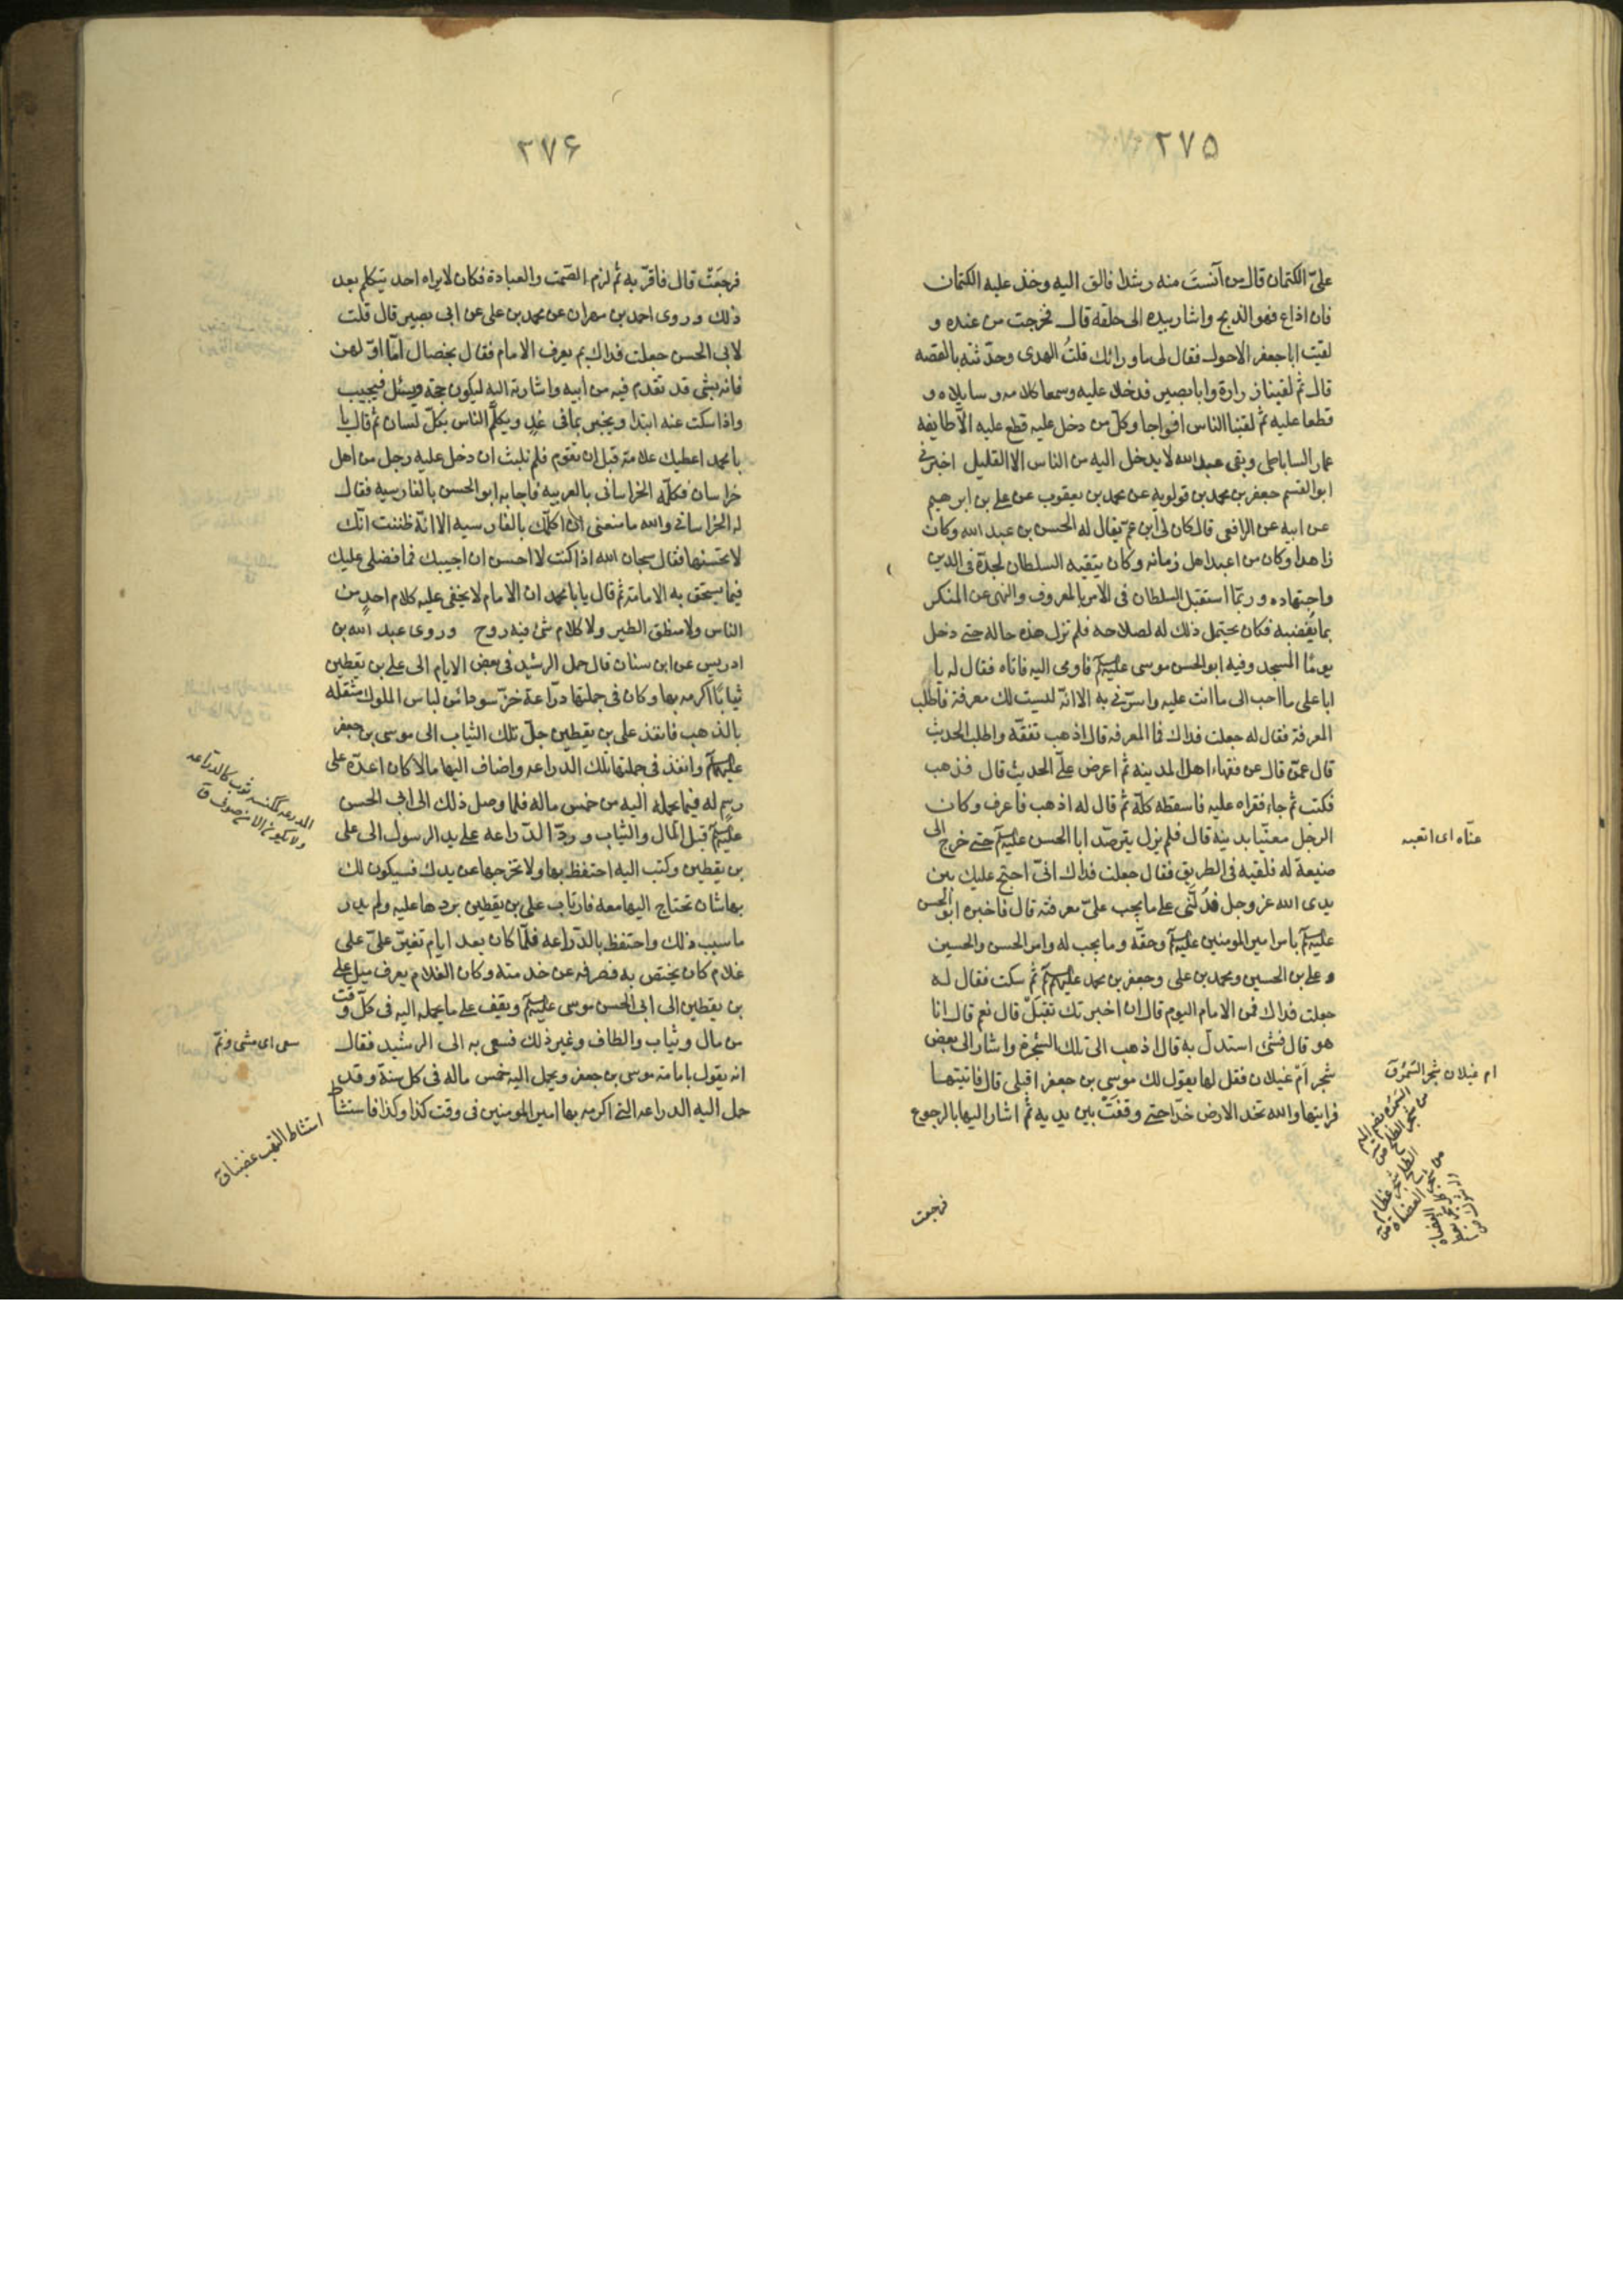 ٢٧٥
علىّ الكتمان قال من آنست منه رشدا فالق اليه وخذ عليه الكتمان
فان اذاع فهو الذبح واشار بيده الى حلقه قال فخرجت من عنده و
لقيت ابا جعفر الاحول فقال لى ما ورائك قلتُ الهدى وحدّثته بالقصه
قال ثم لقينا زرارة وابا بصير فدخلا عليه وسمعا كلامه وسايلاه و
قطعا عليه ثم لقينا الناس افواجا وكلّ من دخل عليه قطع عليه الّا طايفه
عمار الساباطى وبقى عبد الله لا يدخل اليه من الناس الا القليل اخبرنى
ابو القسم جعفر بن محمد بن قولويه عن محمد بن يعقوب عن على بن ابرهيم
عن ابيه عن الرافعى قال كان لى ابن عمّ يقال له الحسن بن عبد الله وكان
زاهدا وكان من اعبد اهل زمانه وكان يتقيه السلطان لجدّه فى الدين
واجتهاده وربّما استقبل السلطان فى الامر بالمعروف والنهى عن المنكر
بما يُغضبه فكان يحتمل ذلك له لصلاحه فلم تزل هذه حاله حتى دخل
يومًا المسجد وفيه ابو الحسن موسى عليه السلم فاومى اليه فاتاه فقال له يا
ابا على ما احب الى ما انت عليه واسرّنى به الا انّه ليست لك معرفة فاطلب
المعرفة فقال له جعلت فداك فما المعرفه قال اذهب تفقّه واطلب الحديث
قال عمّن قال عن فقهاء اهل المدينه ثم اعرض علىّ الحديث قال فذهب
فكتب ثم جاء فقراه عليه فاسقطه كلّه ثم قال له اذهب فاعرف وكان
الرجل معنيّا بدينه قال فلم يزل يترصّد ابا الحسن عليه السلم حتى خرج الى
ضيعة له فلقيه فى الطريق فقال جعلت فداك انّى احتج عليك بين
يدى الله عز وجل فدُلّنى على ما يجب علىّ معرفته قال فاخبره ابو الحسن
عليه السلم بامر امير المومنين عليه السلم وحقّه وما يجب له وامر الحسن والحسين
وعلى بن الحسين ومحمد بن على وجعفر بن محمد عليهم السلم ثم سكت فقال له
جعلت فداك فمن الامام اليوم قال ان اخبرتك تقبل قال نعم قال انا
هو قال فشئ استدلّ به قال اذهب الى تلك الشجرة واشار الى بعض
شجر امّ غيلان فقل لها يقول لك موسى بن جعفر اقبلى قال فاتيتها
فرايتها والله تخد الارض خدّا حتى وقفَتْ بين يديه ثم اشار اليها بالرجوع
فرجعت
عنّاه اى اتعبه
ام غيلان شجر السّمُر ق
السّمُر بضم الميم
من شجر الطلح ص
الطلح شجر عظام
من شجر العضاه ص
٢٧۶
فرجعَتْ قال فاقرّ به ثم لزم الصّمت والعبادة فكان لا يراه احد يتكلم بعد
ذلك وروى احمد بن مهران عن محمد بن على عن ابى بصير قال قلت
لابى الحسن جعلت فداك بم يعرف الامام فقال بخصال امّا اوّلهن
فانه بشئ قد تقدم فيه من ابيه واشارته اليه ليكون حجة ويسئل فيجيب
واذا سكت عنه ابتدا ويخبر بما فى غد ويكلّم الناس بكلّ لسان ثم قال يا
با محمد اعطيك علامة قبل ان تقوم فلم نلبث ان دخل عليه رجل من اهل
خراسان فكلّمه الخراسانى بالعربيه فاجابه ابو الحسن بالفارسيه فقال
له الخراسانى والله ما منعنى ان اكلّمك بالفارسيه الا انّه ظننت انّك
لا تحسنها فقال سبحان الله اذا كنت لا احسن ان اجيبك فما فضلى عليك
فيما يستحق به الامامة ثم قال يا با محمد ان الامام لا يخفى عليه كلام احدٍ من
الناس ولا منطق الطير ولا كلام شئ فيه روح وروى عبد الله بن
ادريس عن ابن سنان قال حمل الرشيد فى بعض الايام الى على بن يقطين
ثيابًا اكرمه بها وكان فى جملتها درّاعة خزّ سودا من لباس الملوك مثقله
بالذهب فانفذ على بن يقطين جلّ تلك الثياب الى موسى بن جعفر
عليهما السلم وانفذ فى جملتها تلك الدّراعه واضاف اليها مالا كان اعدّه على
رسم له فيما يحمله اليه من خمس ماله فلما وصل ذلك الى ابى الحسن
عليه السلم قبل المال والثياب وردّ الدّراعه على يد الرسول الى على
بن يقطين وكتب اليه احتفظ بها ولا تخرجها عن يدك فسيكون لك
بها شان تحتاج اليها معه فارتاب على بن يقطين بردها عليه ولم يدر
ما سبب ذلك واحتفظ بالدّراعه فلمّا كان بعد ايام تغيّر علىّ على
غلام كان يختص به فصرفه عن خدمته وكان الغلام يعرف ميل على
بن يقطين الى ابى الحسن موسى عليه السلم ويقف على ما يحمله اليه فى كلّ وقت
من مال وثياب والطاف وغير ذلك فسعى به الى الرشيد فقال
انه يقول بامامة موسى بن جعفر ويحمل اليه خمس ماله فى كل سنة وقد
حمل اليه الدراعه التى اكرمه بها امير المومنين فى وقت كذا وكذا فاستشاط
المدرعه كمكنسه ثوب كالدرّاعه
ولا يكون الا من صوف ق
سعى اى مشى ونمّ
استشاط التهب غضبا ق